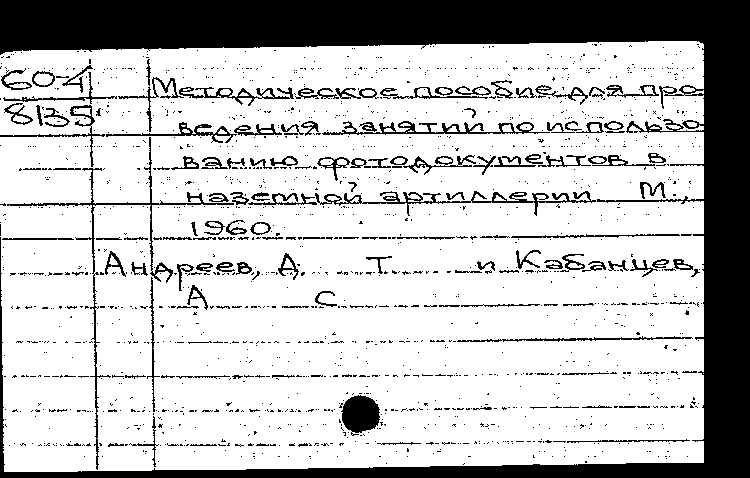 60-4
8135
Методическое пособие для про-
ведения занятий по использо-
ванию фотодокументов в
наземной артиллерии М.,
1960.
Андреев, А. Т. и Кабанцев,
А С